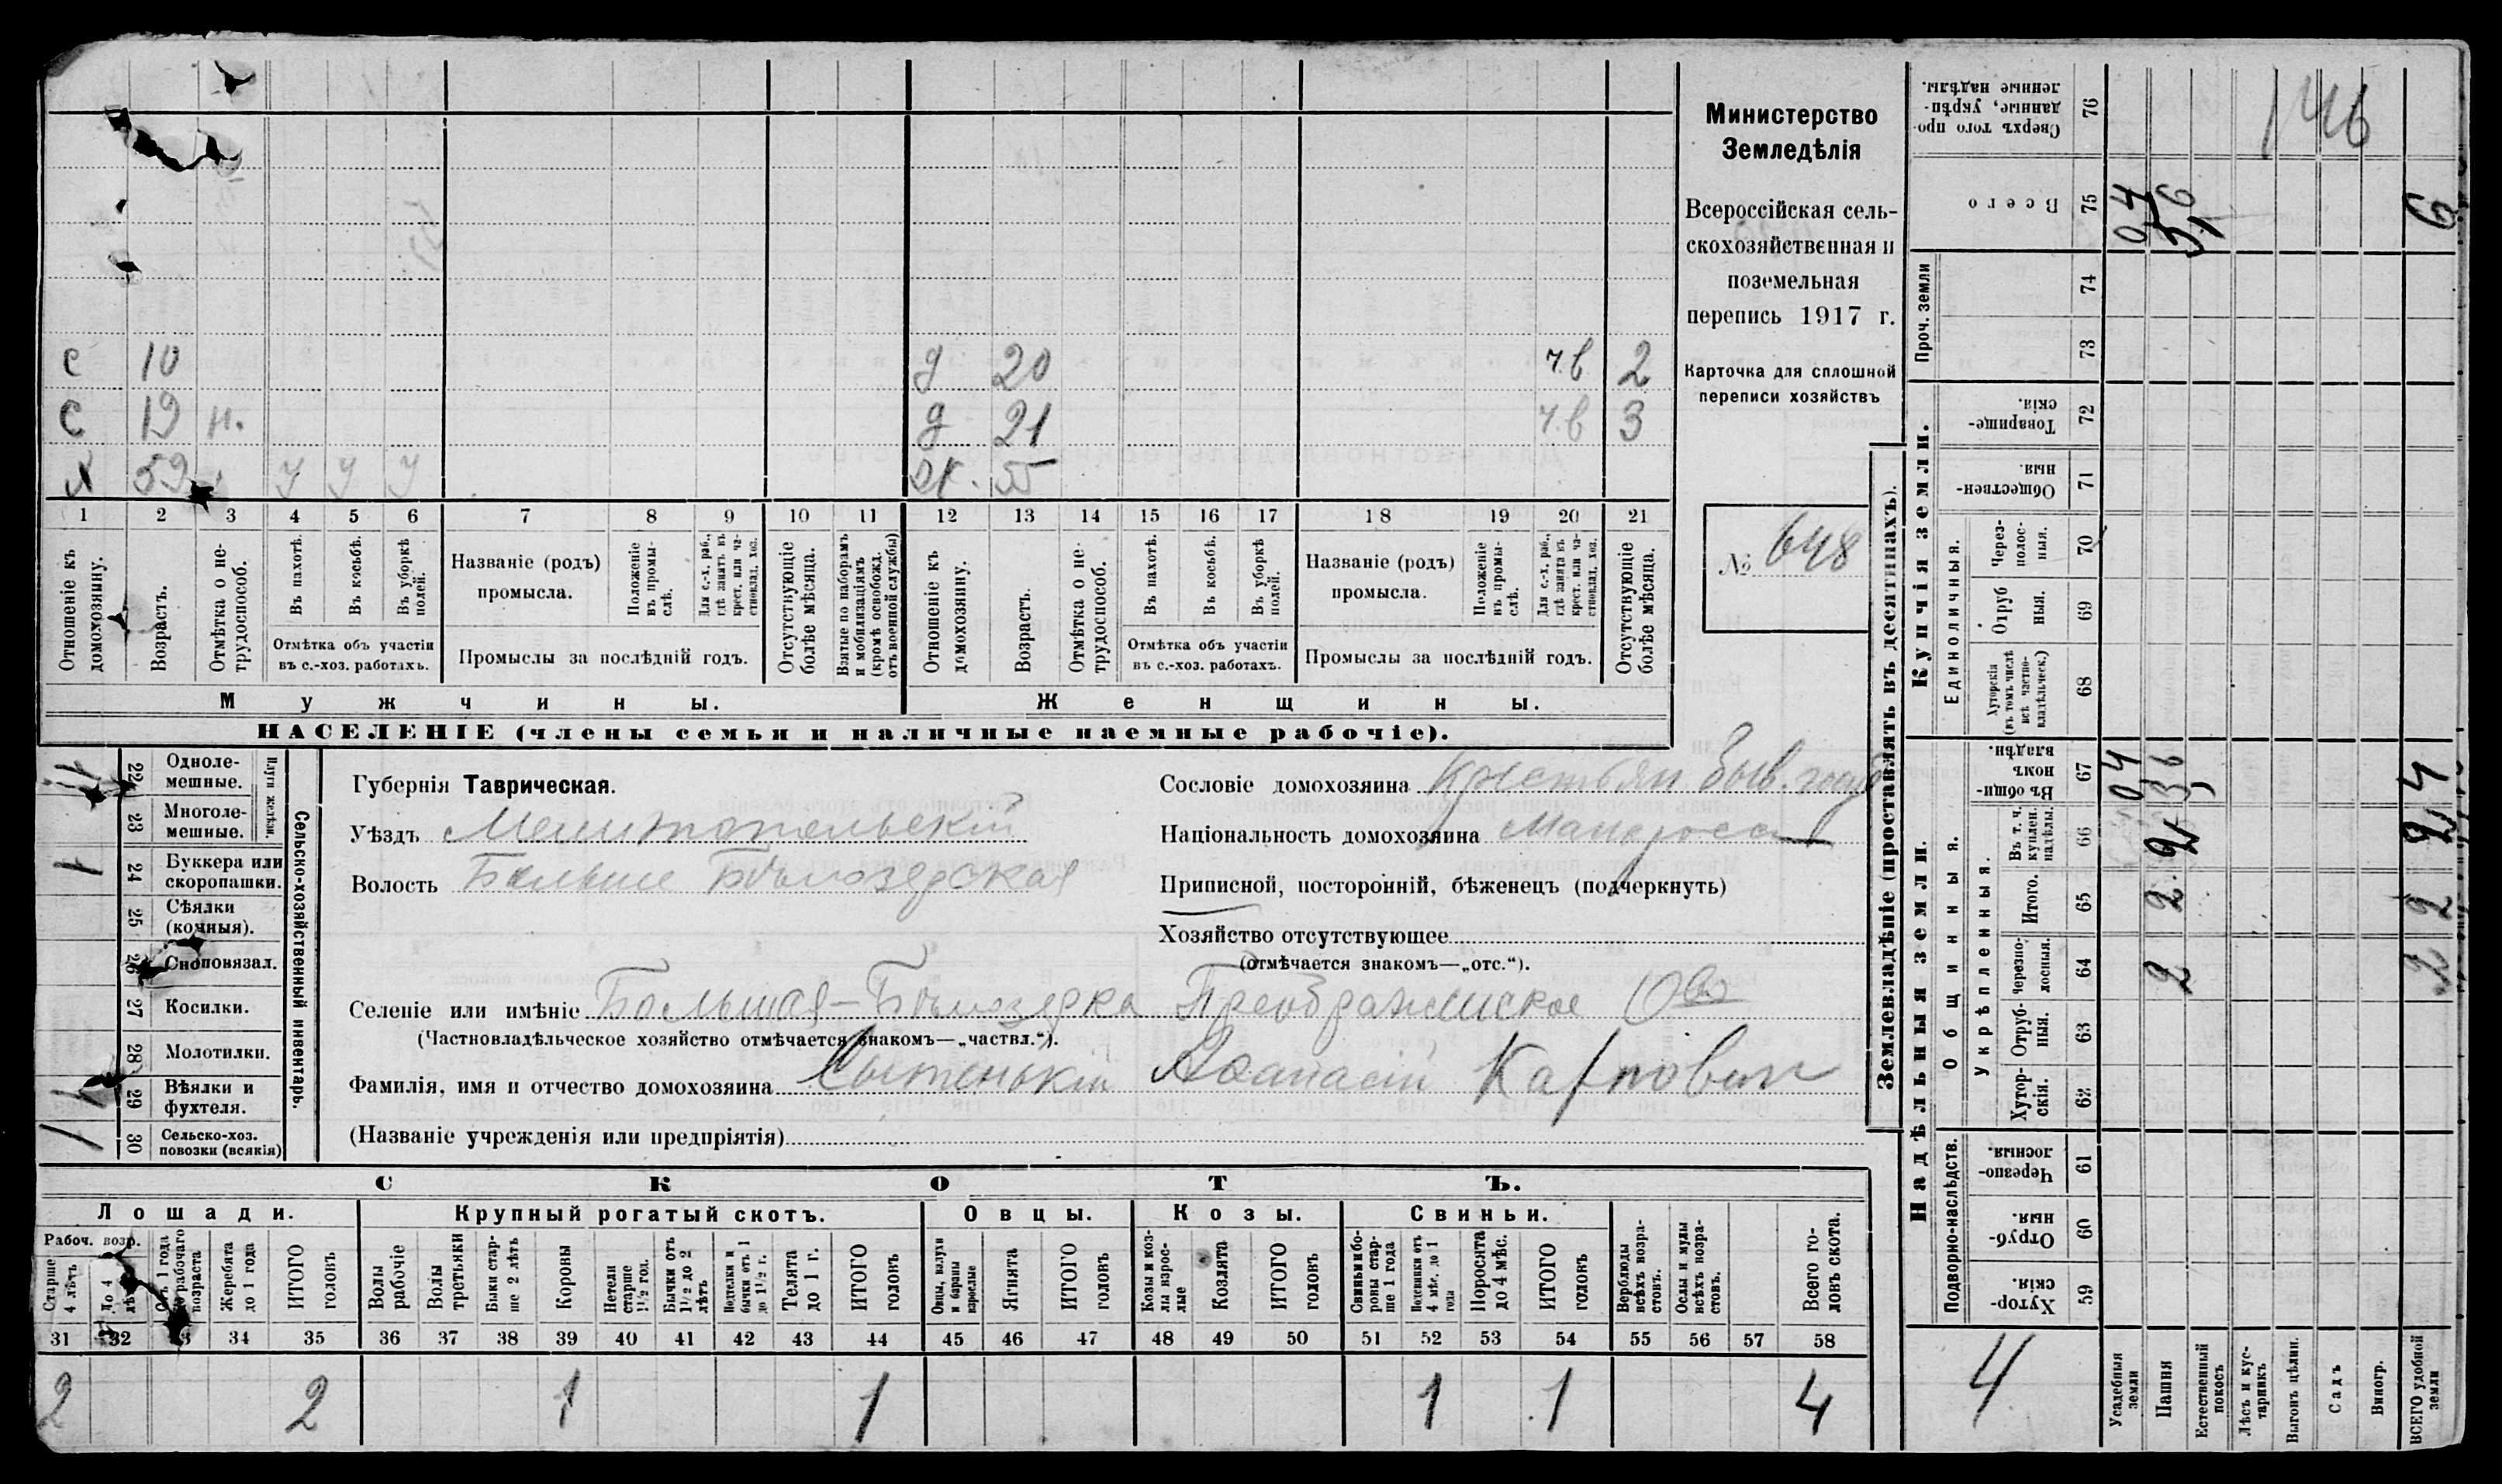 Министерство
Земледѣлія
Всероссійская сель-
скохозяйственная и
поземельная
перепись 1917 г.
Карточка для сплошной
переписи хозяйствъ
№ 648
с 10 д 20 ч.в 2
с 19 н. д 21 ч.в 3
х 59 у у у ж. 55
1 2 3 4 5 6 7 8 9 10 11 12 13 14 15 16 17 18 19 20 21
Отношеніе къ домохозяину.
Возрастъ.
Отмѣтка о не-трудоспособ.
Въ пахотѣ.
Въ косьбѣ.
Въ уборкѣ полей.
Отмѣтка объ участіи
въ с.-хоз. работахъ.
Названіе (родъ)
промысла.
Положеніе въ промы-слѣ.
Для с.-х. раб., гдѣ занятъ въ крест. или ча-стновлад. хоз.
Промыслы за послѣдній годъ.
Отсутствующіе болѣе мѣсяца.
Взятые по наборамъ и мобилизаціямъ (кромѣ освобожд. отъ военной службы)
Отношеніе къ домохозяину.
Возрастъ.
Отмѣтка о не-трудоспособ.
Въ пахотѣ.
Въ косьбѣ.
Въ уборкѣ полей.
Отмѣтка объ участіи
въ с.-хоз. работахъ.
Названіе (родъ)
промысла.
Положеніе въ промы-слѣ.
Для с.-х. раб., гдѣ занята въ крест. или ча-стновлад. хоз.
Промыслы за послѣдній годъ.
Отсутствующіе болѣе мѣсяца.
Мужчины.
Женщины.
НАСЕЛЕНІЕ (члены семьи и наличные наемные рабочіе).
Сельско-хозяйственный инвентарь.
Плуги желѣзн.
22 Одноле-мешные.
23 Многоле-мешные.
1 24 Буккера или скоропашки.
25 Сѣялки (конныя).
26 Сноповязал.
27 Косилки.
28 Молотилки.
1 29 Вѣялки и фухтеля.
1 30 Сельско-хоз. повозки (всякія)
Губернія Таврическая.
Уѣздъ Мелитопольскій
Волость Больше Бѣлозерская
Сословіе домохозяина Крестьян. быв. госуд
Національность домохозяина Малоросс
Приписной, посторонній, бѣженецъ (подчеркнуть)
Хозяйство отсутствующее
(отмѣчается знакомъ—„отс.“).
Селеніе или имѣніе Большая-Бѣлозерка Преображенское О-во
(Частновладѣльческое хозяйство отмѣчается знакомъ—„частвл.“).
Фамилія, имя и отчество домохозяина Афанасій Карпович
(Названіе учрежденія или предпріятія)
СКОТЪ.
Лошади. Крупный рогатый скотъ. Овцы. Козы. Свиньи.
Рабоч. возр.
Старше 4 лѣтъ
До 4 лѣтъ
Отъ 1 года до рабочаго возраста
Жеребята до 1 года
ИТОГО головъ
Волы рабочіе
Волы третьяки
Быки стар-ше 2 лѣтъ
Коровы
Нетели старше 1½ год.
Бычки отъ 1½ до 2 лѣтъ
Подтелки и бычки отъ 1 до 1½ г.
Телята до 1 г.
ИТОГО головъ
Овцы, валухи и бараны взрослые
Ягнята
ИТОГО головъ
Козы и коз-лы взрос-лые
Козлята
ИТОГО головъ
Свиньи и бо-ровы стар-ше 1 года
Подсвинки отъ 4 мѣс. до 1 года
Поросята до 4 мѣс.
ИТОГО головъ
Верблюды всѣхъ возра-стовъ.
Ослы и мулы всѣхъ возра-стовъ.
Всего го-ловъ скота.
31 32 33 34 35 36 37 38 39 40 41 42 43 44 45 46 47 48 49 50 51 52 53 54 55 56 57 58
2 2 1 1 1 1 4
Землевладѣніе (проставлять въ десятинахъ).
Купчія земли.
Надѣльныя земли.
Сверхъ того про-данные, укрѣп-ленные надѣлы. 76
146
Всего 75 04 5,6 6
Проч. земли 74
73
Товарище-скія. 72
Обществен-ныя. 71
Единоличныя.
Через-полос-ныя. 70
Отруб-ныя. 69
Хуторскія (въ томъ числѣ всѣ частно-владѣльческ.) 68
Общинныя.
Въ общин-номъ владѣн. 67 04 36 4
Укрѣпленныя.
Въ т. ч. куплен. надѣлы. 66 2 2
Итого. 65 2 2
Черезпо-лосныя. 64 2 2
Отруб-ныя. 63
Хутор-скія. 62
Подворно-наслѣдств.
Черезпо-лосныя. 61
Отруб-ныя. 60
Хутор-скія. 59
4
Усадебныя земли
Пашня
Естественный покосъ
Лѣсъ и кус-тарникъ
Выгонъ цѣлин.
Садъ
Виногр.
ВСЕГО удобной земли